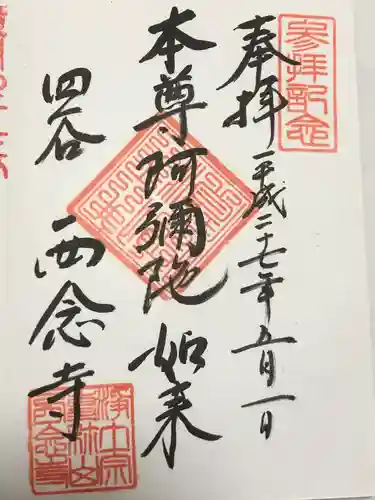 参拝記念
奉拝 平成二十七年五月一日
本尊 阿彌陀如来
四谷 西念寺
浄土宗